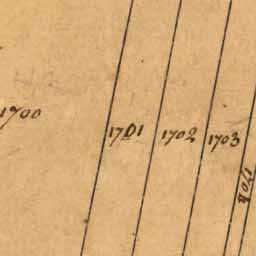 1700
1701
1702
1703
1704